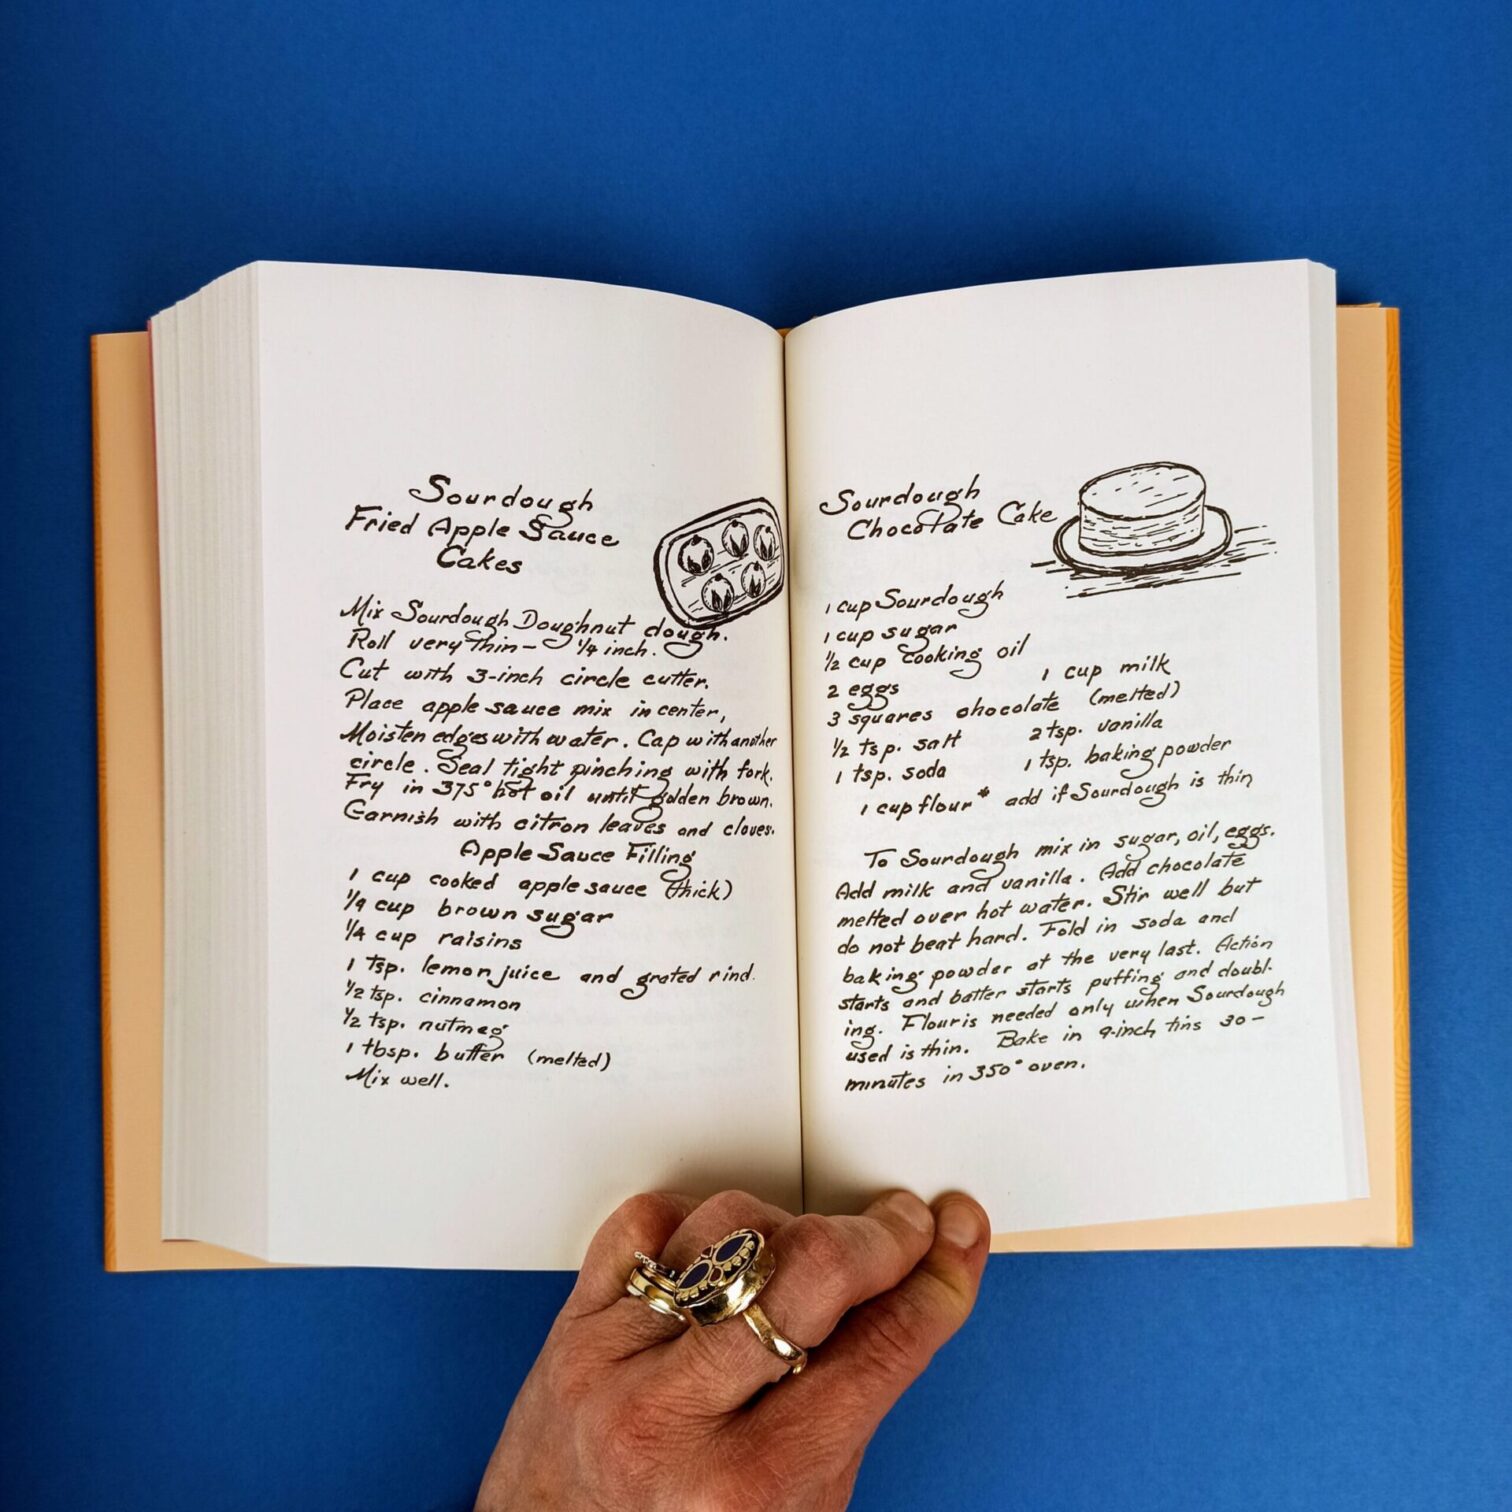 Sourdough
Fried Apple Sauce
Cakes
Mix Sourdough Doughnut dough.
Roll very thin — 1/4 inch.
Cut with 3-inch circle cutter.
Place apple sauce mix in center,
Moisten edges with water. Cap with another
circle. Seal tight pinching with fork.
Fry in 375° hot oil until golden brown.
Garnish with citron leaves and cloves.
Apple Sauce Filling
1 cup cooked apple sauce (thick)
1/4 cup brown sugar
1/4 cup raisins
1 tsp. lemon juice and grated rind.
1/2 tsp. cinnamon
1/2 tsp. nutmeg
1 tbsp. butter (melted)
Mix well.
Sourdough
Chocolate Cake
1 cup Sourdough
1 cup sugar
1/2 cup cooking oil
2 eggs 1 cup milk
3 squares chocolate (melted)
1/2 tsp. salt 2 tsp. vanilla
1 tsp. soda 1 tsp. baking powder
1 cup flour* add if Sourdough is thin
To Sourdough mix in sugar, oil, eggs.
Add milk and vanilla. Add chocolate
melted over hot water. Stir well but
do not beat hard. Fold in soda and
baking powder at the very last. Action
starts and batter starts puffing and doubl-
ing. Flour is needed only when Sourdough
used is thin. Bake in 9-inch tins 30-
minutes in 350° oven.